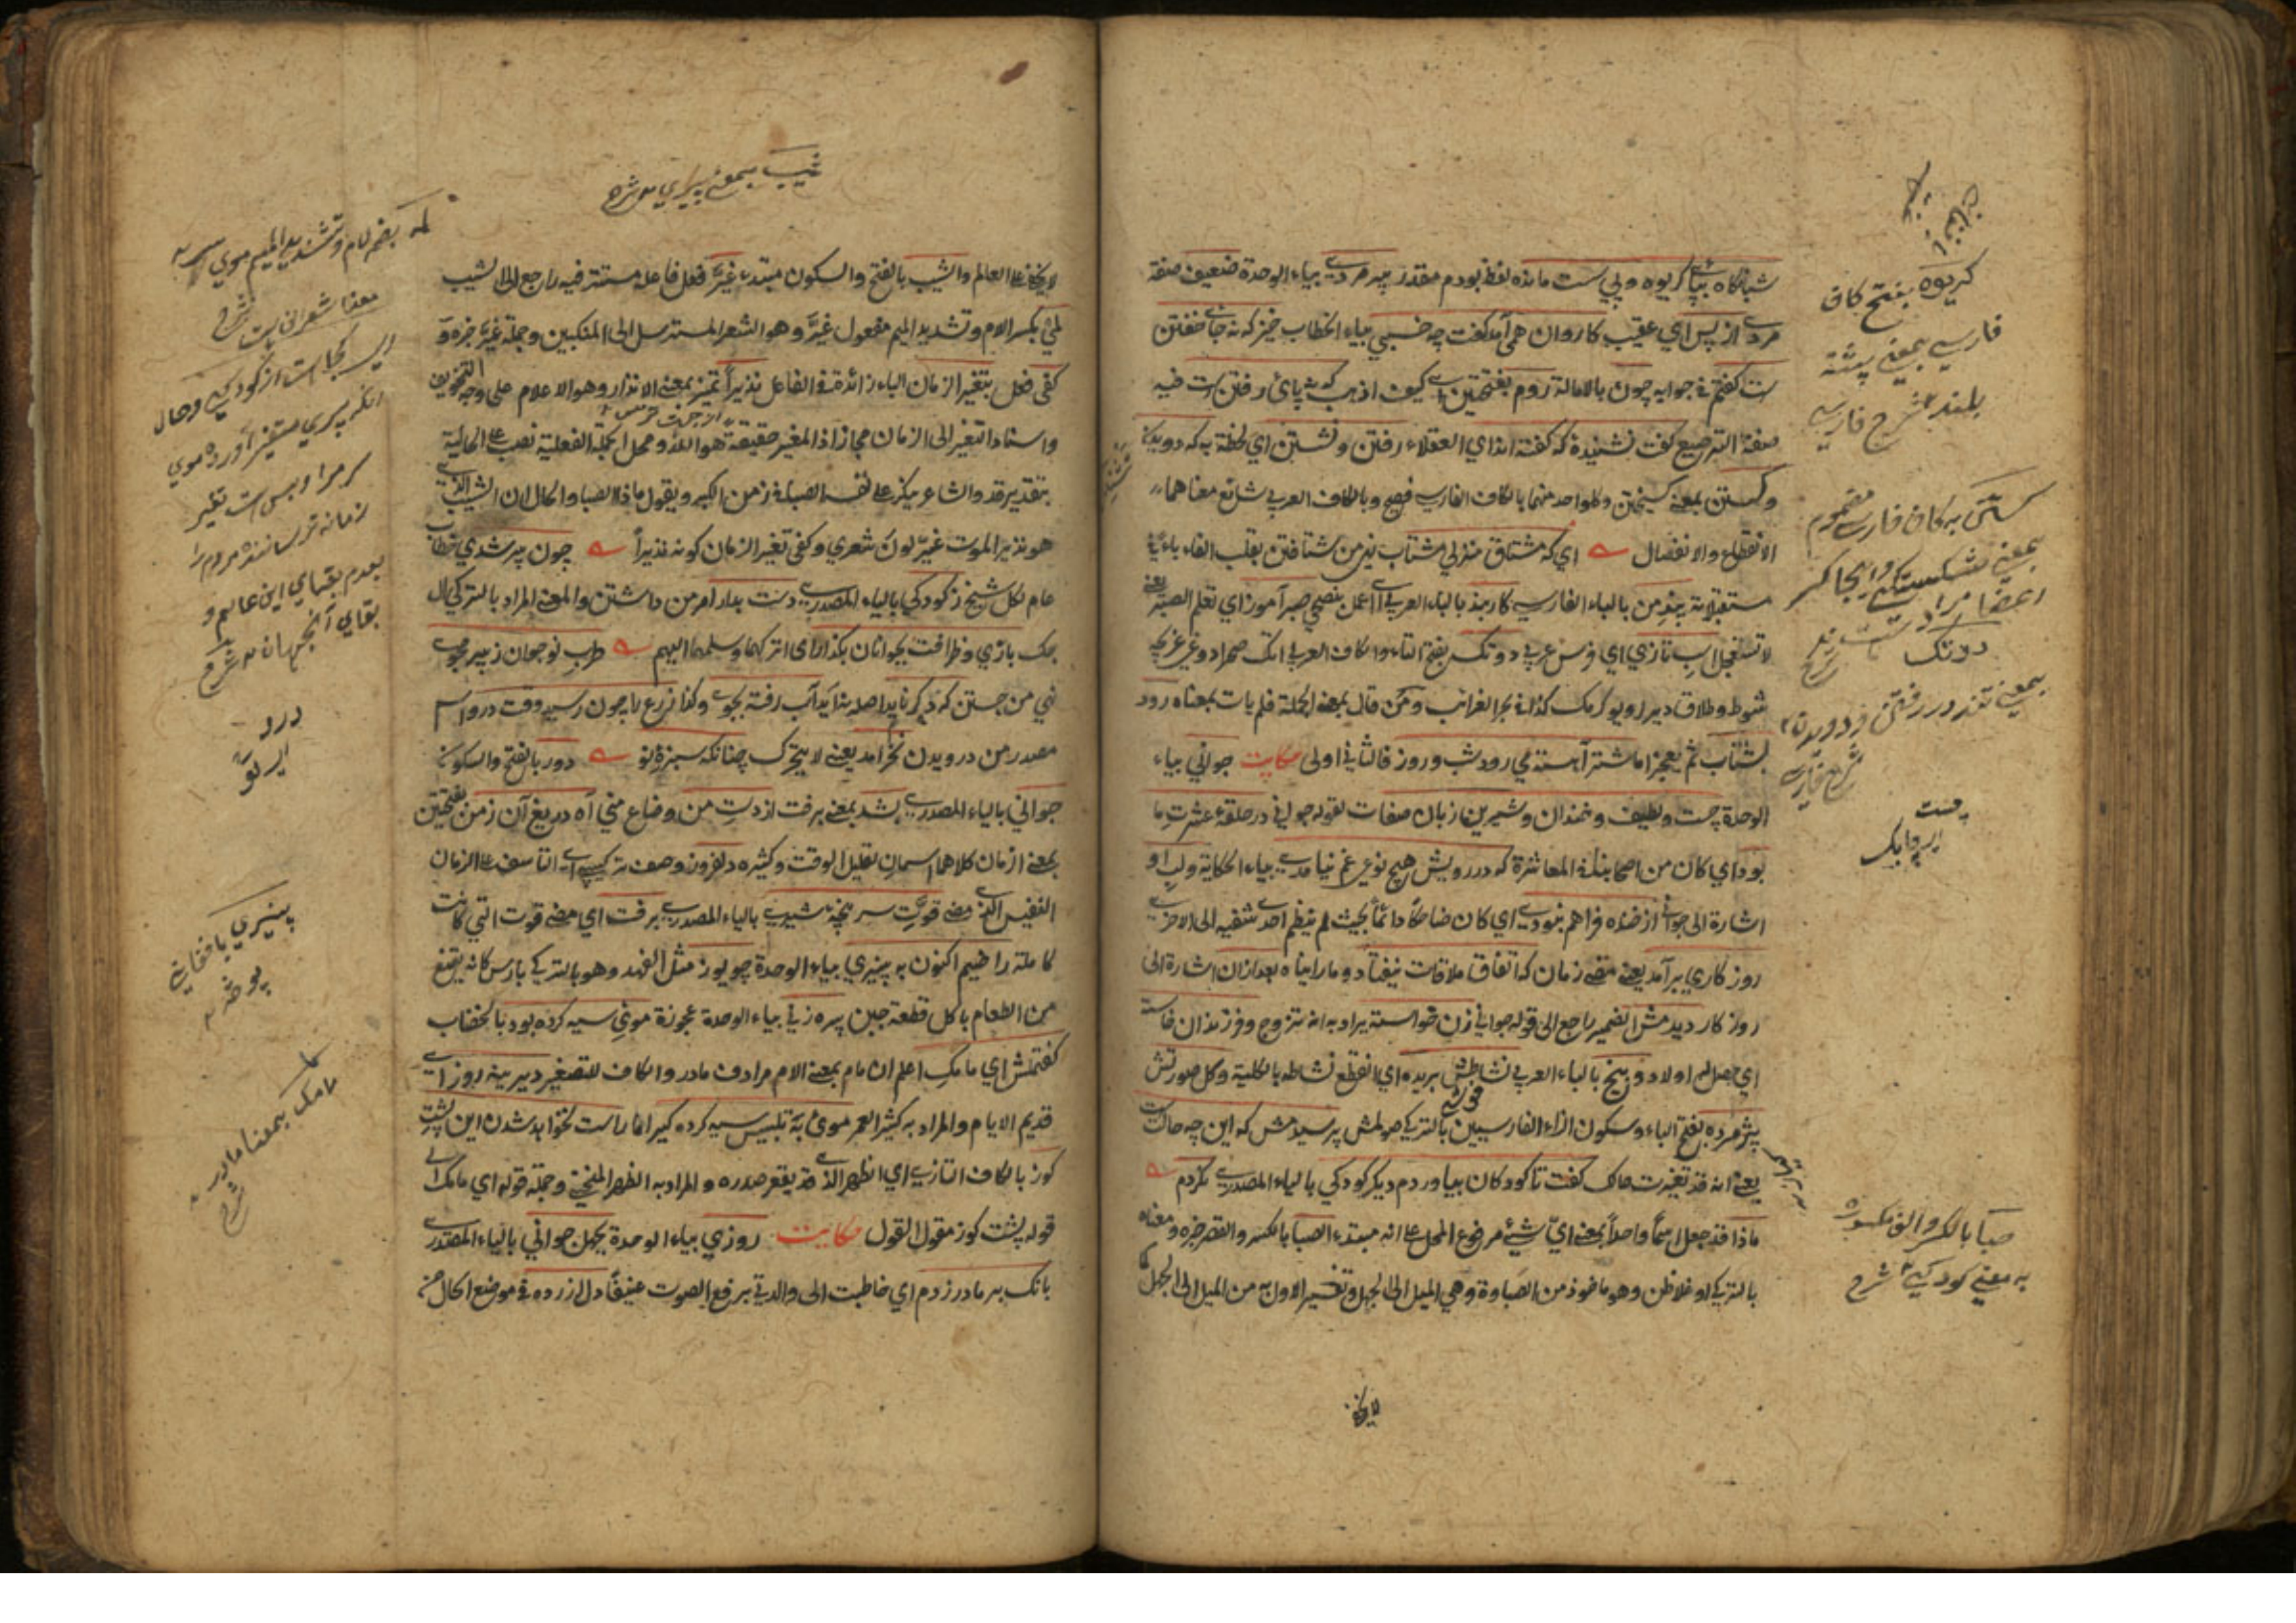 شبانگاه بپای کریوه وپی ست مانده لفظ بودم مقدر پیر مردی بیاء الوحدة ضعیف صفة
مردی از پس ای عقیب کاروان همی آمد کفت چه خسبی بیاء الخطاب خیز که نه جای خفتن
ست کفتم فی جوابه چون بالامالة روم بفتحتین ای کیف اذهب که نه پای رفتن ست فیه
صفة الترصیع کفت نشنیدهٔ که کفته اند ای العقلاء رفتن ونشستن ای لحظة به که دویدن
وکسستن بمعنی کسیختن وکلواحد منهما بالکاف الفارسی فصیح وبالکاف العربی شائع معناهما
الانقطاع والانفصال ای که مشتاق منزلی مشتاب نهی من شتافتن بقلب الفاء باء فی
مستقبلاته پند من بالباء الفارسی کاربند بالباء العربی ای اعمل بنصحی صبر آموز ای تعلم الصبر یعنی
لا تستعجل اسپ تازی ای فرس عربی دو تک بفتح التاء والکاف العربی
شوط وطلاق دیرلر ویو کرمک کذا فی بحر الغرائب ومن قال بمعنی الحملة فلم یات بمعناه رود
بشتاب ثم یعجز اما شتر آهسته می رود شب وروز فالتأنی اولی حکایت جوانی بیاء
الوحدة چست ولطیف وخندان وشیرین زبان صفات لقوله جوانی در حلقهٔ عشرت ما
بود ای کان من اصحابنا فی المعاشرة که در رویش هیچ نوعی غم نیامدی بیاء الحکایة ولب او
اشارة الی جوانی از خنده فراهم نبودی ای کان ضاحکا دائماً بحیث لم ینظم احدی شفتیه الی الاخری
روزکاری برآمد یعنی مضی زمان که اتفاق ملاقات نیفتاد وما رأیناه بعد ازان اشارة الی
روزکار دیدمش الضمیر راجع الی قوله جوانی زن خواسته یراد به انه تزوج وفرزندان خاسته
ای حصل لهم اولاد وبیخ بالباء العربی نشاطش بریده ای انقطع نشاطه بالکلیة وکل صورتش
پژمرده بفتح الباء وسکون الزاء الفارسیین بالترکی صولمش پرسیدمش که این چه حالت
یعنی انه قد تغیرت حالک کفت تا کودکان بیاوردم دیکر کودکی بالیاء المصدری نکردم
ماذا قد جعل اسماً واحداً بمعنی ای شیء مرفوع المحل علی انه مبتدء الصبا بالکسر والقصر خبره ومعناه
بالترکی اوغلانلق وهو ماخوذ من الصباوة وهی المیل الی الجهل وتفسیر الاول به من المیل الی الجهل کما
کریوه بفتح کاف
فارسی بمعنی پشته
بلند شرح فارسی
کسستن به کاف فارسی مضموم
بمعنی شکستکی واینجا
دوتک
بمعنی تند در رفتن ودویدن
شرح فارسی
چست
چابک
صبا بالکسر والف مکسوره
به معنی کودکی شرح
لایخفی
شیب بمعنی پیری شرح
لایخفی علی العالم والشیب بالفتح والسکون مبتدء غیّر فعل فاعله مستتر فیه راجع الی الشیب
لمتی بکسر اللام وتشدید المیم مفعول غیّر وهو الشعر المسترسل الی المنکبین وجملة غیّر خبره و
کفی فعل بتغیر الزمان الباء زائدة فی الفاعل نذیراً تمیز بمعنی الانذار وهو الاعلام علی وجه التخویف
واسناد التغیر الی الزمان مجاز اذ المغیر حقیقة هو الله ومحل الجملة الفعلیة نصب علی الحالیة
بتقدیر قد والشاعر ینکر علی نفسه الصبا فی زمن الکبر ویقول ماذا الصبا والحال ان الشیب الذی
هو نذیر الموت غیّر لون شعری وکفی تغیر الزمان کونه نذیراً چون پیر شدی خطاب
عام لکل شیخ ز کودکی بالیاء المصدری دست بدار امر من داشتن والمعنی المراد بالترکی ال
چک بازی وظرافت بجوانان بکذار ای اترکهما وسلمهما الیهم طرب نوجوان ز پیر مجوی
نهی من جستن که دکر ناید اصله بنا آید آب رفته بجوی وکذا زرع را چون رسید وقت درو اسم
مصدر من درویدن نخرامد یعنی لا یتحرک چنانکه سبزهٔ نو دور بالفتح والسکون
جوانی بالیاء المصدری بشد بمعنی برفت از دست من وضاع منی آه دریغ آن زمن بفتحتین
بمعنی الزمان کلاهما اسمان لقلیل الوقت وکثیره دلفروز وصف ترکیبی ای التاسف علی الزمان
النفیس الذی مضی قوّت سر پنجهٔ شیری بالیاء المصدری برفت ای مضی قوت التی کانت
کاملة راضیم اکنون به پنیری بیاء الوحدة چو یوز مثل الفهد وهو بالترکی بارس کانه یقنع
من الطعام باکل قطعة جبن پیره زنی بیاء الوحدة عجوزة موی سیه کرده بود بالخضاب
کفتمش ای مامک اعلم ان مام بمعنی الام مرادف مادر والکاف للتصغیر دیرینه روز ای
قدیم الایام والمراد به کثیر العمر موی به تلبیس سیه کرده کیر اما راست نخواهد شدن این پشت
کوز بالکاف التازی ای الظهر الذی قد یقعر صدره والمراد به الظهر المنحنی وجملة قوله ای مامک الی
قوله پشت کوز مقول القول حکایت روزی بیاء الوحدة بجهل جوانی بالیاء المصدری
بانک بر مادر زدم ای خاطبت الی والدتی برفع الصوت عنیفاً دل ازرده فی موضع الحال من
لمه بضم لام وتشدید المیم موی سر
معنا شعر اینست شرح
این کجاست از کودکی وحال
آنکه پیری متغیر آورده موی
سر مرا وبس است تغیر
زمانه ترساننده مردم را
بعدم بقای این عالم و
بقای آنجهان شرح
درو
پنیری
مامک بمعنا مادر
شرح